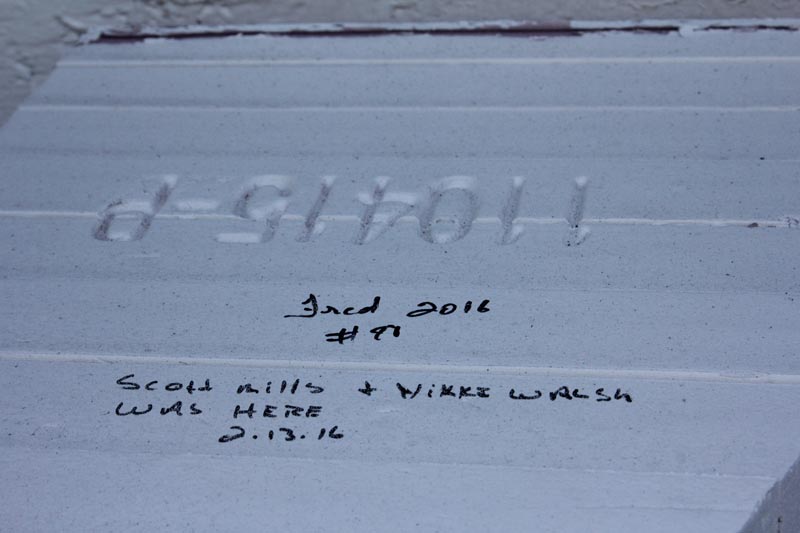 110415-P
Fred 2016
Scott Mills + NIKKI WALSh
WAS HERE
2.13.16